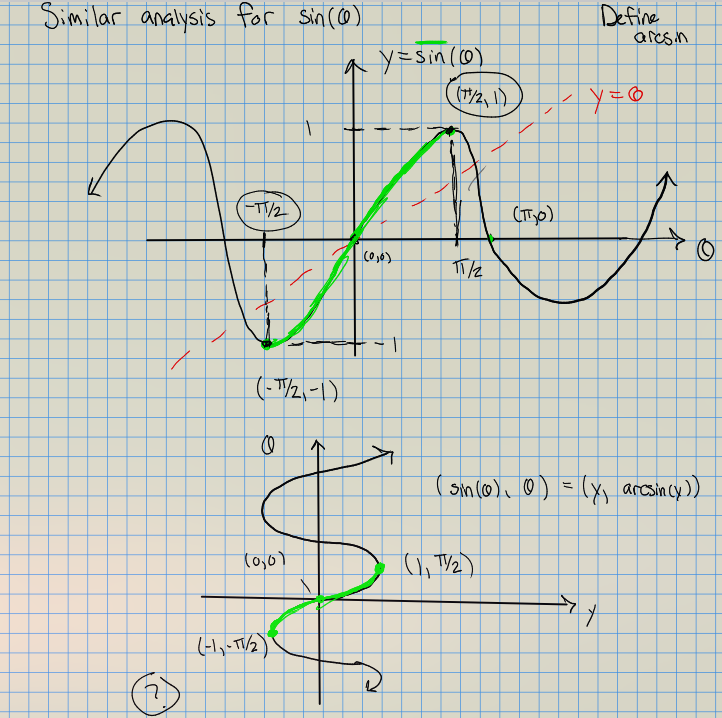 Similar analysis for sin(θ)
Define
arcsin
y = sin(θ)
(π/2, 1)
y = θ
1
-π/2
(π, 0)
(0,0)
π/2
θ
-1
(-π/2, -1)
θ
(sin(θ), θ) = (y, arcsin(y))
(0,0)
(1, π/2)
y
(-1, -π/2)
?